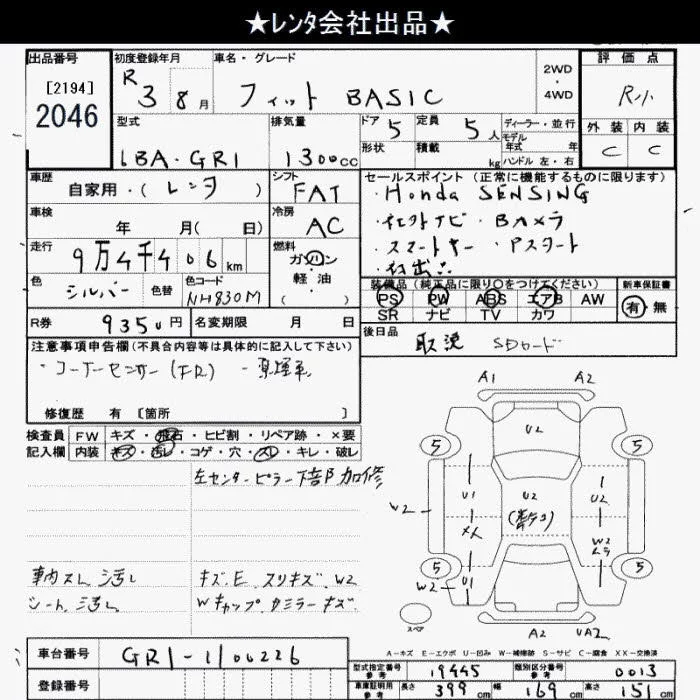 ★レンタ会社出品★
出品番号 初度登録年月 車名・グレード 評価点
[2194]
2046
R 3 8月 フィット BASIC
2WD
・
4WD
R小
型式 排気量 ドア 5 定員 5人 ディーラー・並行
モデル
年式 年
外装 内装
形状 積載 kg ハンドル 左・右
6BA・GR1 1300cc C C
車歴 シフト セールスポイント(正常に機能するものに限ります)
自家用・(レンタ) FAT ・Honda SENSING
車検 冷房 ・社外ナビ・Bカメラ
年 月( 日) AC ・スマートキー・Pスタート
走行 燃料
9万4千406km ガソリン
色 シルバー 色替 色コード NH830M 軽油
( )
装備品(純正品に限り○をつけてください) 新車保証書
PS PW ABS エアB AW 有・無
SR ナビ TV カワ
R券 9350円 名変期限 月 日
後日品 取説 SDカード
注意事項申告欄(不具合内容等は具体的に記入して下さい)
・コーナーセンサー(F.R)
修復歴 有 [箇所 ]
検査員 FW キズ・飛石・ヒビ割・リペア跡・×要
記入欄 内装 キズ・汚レ・コゲ・穴・スレ・キレ・破レ
左センターピラー下部加修
車内スレ汚レ キズ.E.スリキズ W2
シート汚レ Wキャップ.Rミラーキズ
A1 A2
U2
5 5
U1 U2 U2
W2
W2
ムラ
W2 U1
5 5
スペア
A2 UA2
A-キズ E-エクボ U-凹み W-補修跡 S-サビ C-腐食 XX-交換済
車台番号 GR1-1106226
登録番号
型式指定番号 参考 19445 類別区分番号 参考 0013
車庫証明用 参考 長さ 399cm 幅 169cm 高さ 151cm